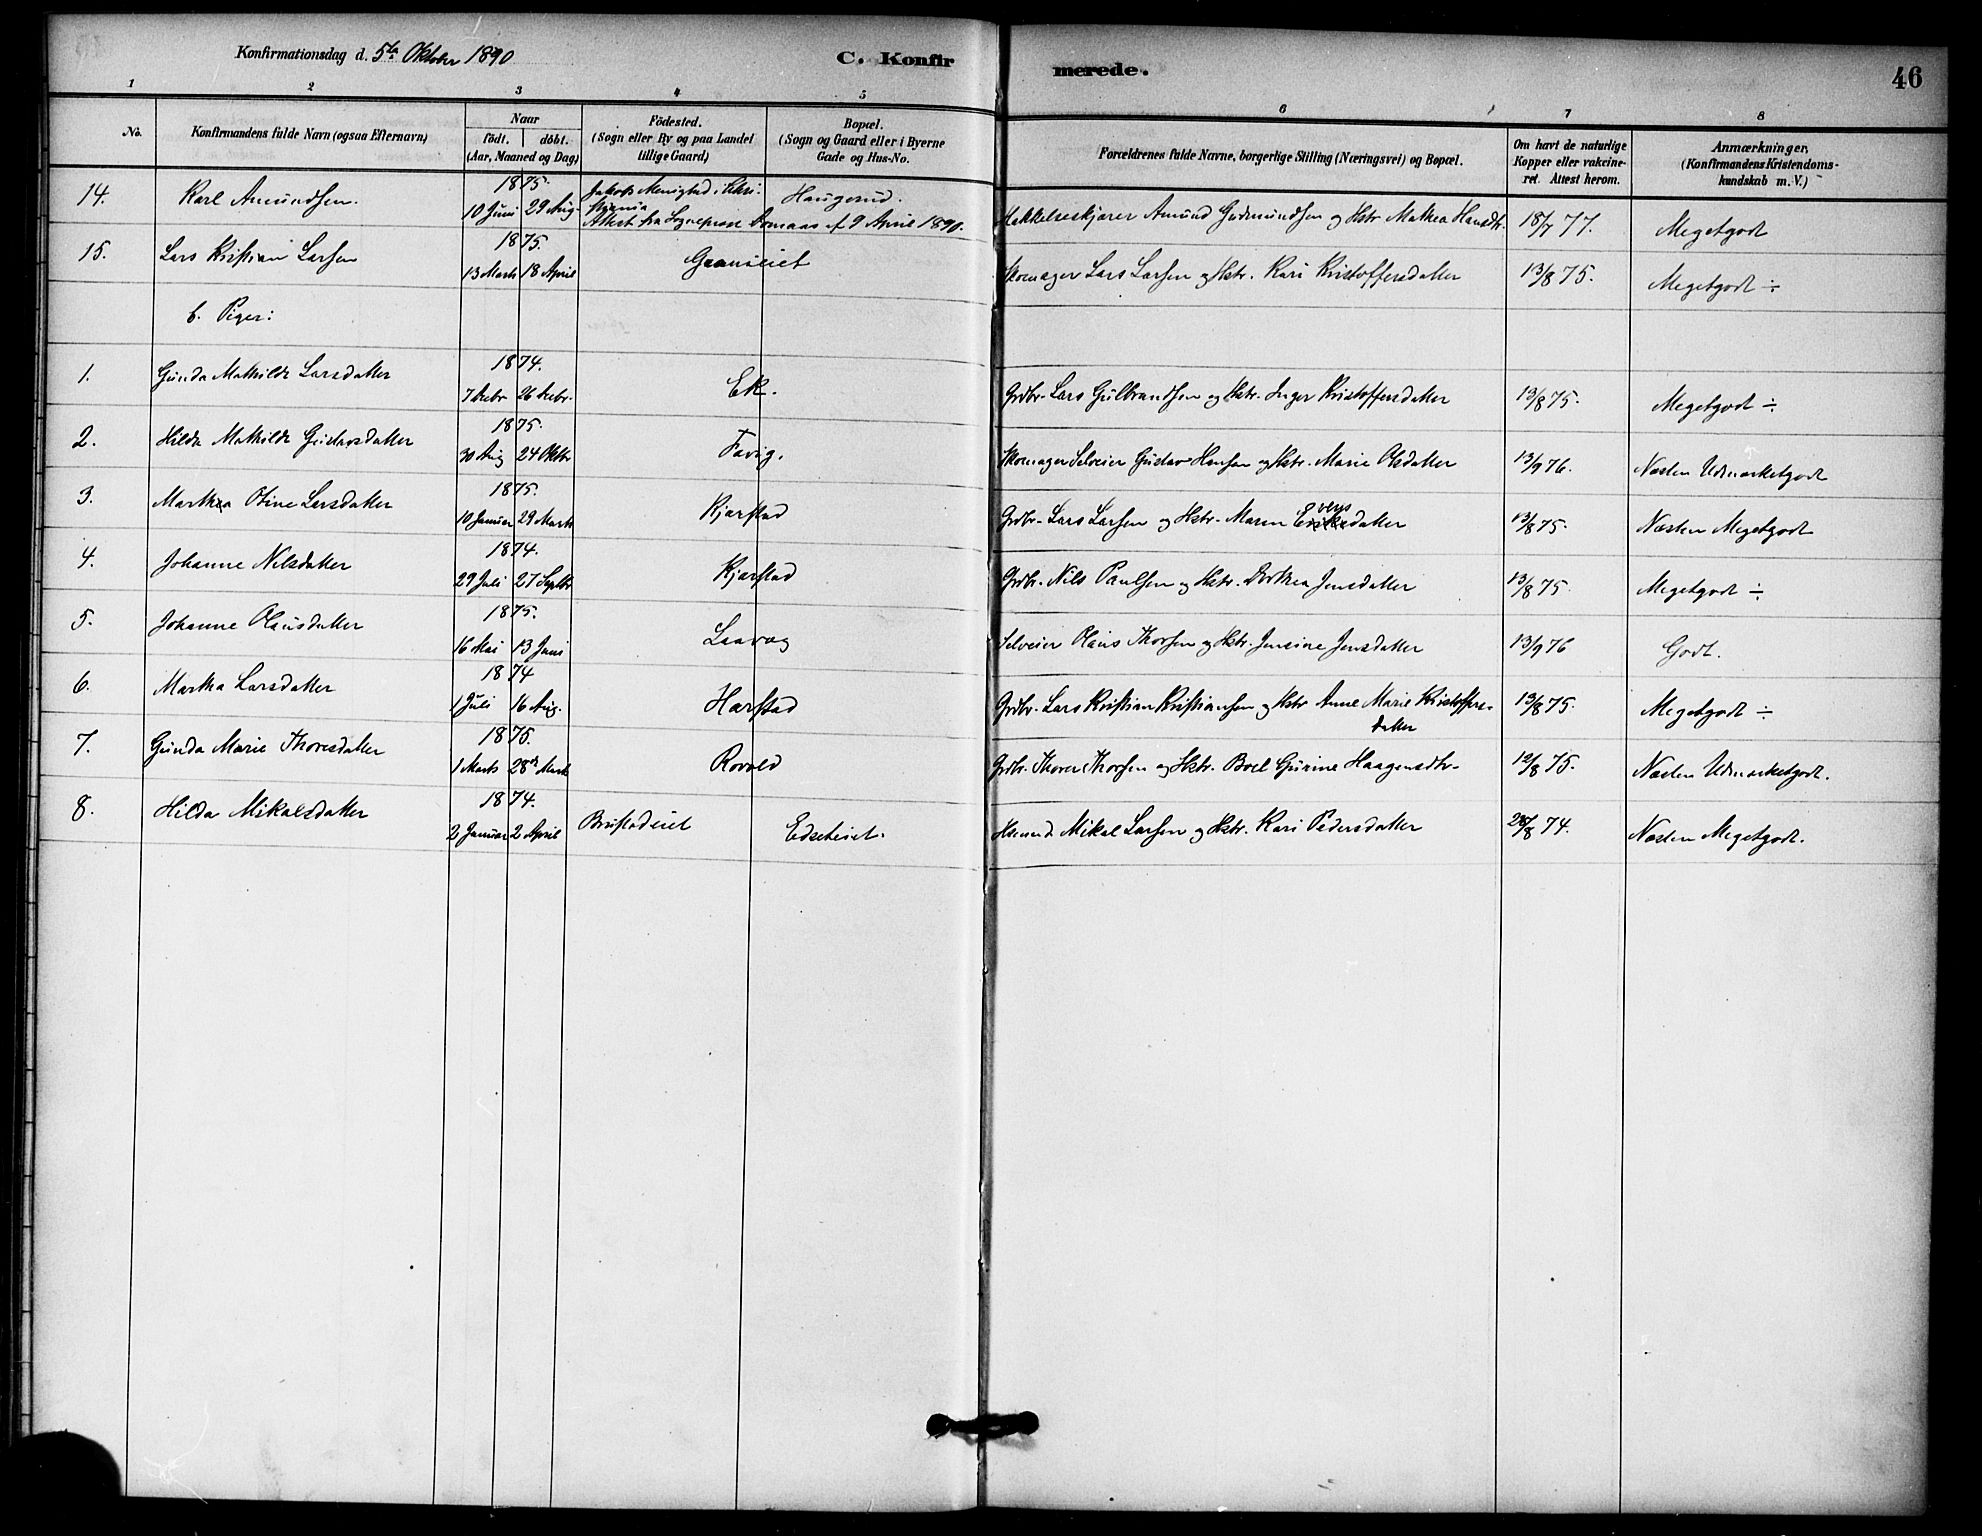 Konfirmationsdag d. 5te Oktober 1890
C. Konfir
merede.
46
1 2 3 4 5 6 7 8
No.
Konfirmandens fulde Navn (ogsaa Efternavn)
Naar
födt. döbt.
(Aar, Maaned og Dag)
Födested.
(Sogn eller By og paa Landet
tillige Gaard)
Bopæl.
(Sogn og Gaard eller i Byerne
Gade og Hus-No.
Forældrenes fulde Navne, borgerlige Stilling (Næringsvei) og Bopæl.
Om havt de naturlige
Kopper eller vakcine-
ret. Attest herom.
Anmærkninger,
(Konfirmandens Kristendoms-
kundskab m. V.)
14. Karl Amundsen. 1875. 10 Juni 29 Aug. Jakobs Menighed i Kri-
stiania Haugerud. Hakkelseskjærer Amund Gudmundsen og Hstr Mathea Hansdtr. 18/7 77. Megetgodt
Attest fra Sognepræst af 9 April 1890.
15. Lars Kristian Larsen 1875. 13 Marts 18 April Graneiet Skomager Lars Larsen og Hstr. Kari Kristoffersdatter 13/8 75. Megetgodt ÷
b. Piger:
1. Gunda Mathilde Larsdatter 1874. 7 Debr 26 Debr. Ek. Grdbr. Lars Gulbrandsen og Hstr. Inger Kristoffersdatter 13/8 75. Megetgodt ÷
2. Hilda Mathilde Gustavsdatter 1875. 30 Aug 24 Oktbr Favig. Skomager Selveier Gustav Hansen og Hstr. Marie Olsdatter 13/9 76. Næsten Udmærketgodt
3. Marthea Otine Larsdatter 1875. 10 Januar 29 Marts Kjærstad Grdbr. Lars Larsen og Hstr. Maren Eversdatter 13/8 75. Næsten Megetgodt
4. Johanne Nilsdatter 1874. 29 Juli 27 Septbr Kjærstad Grdbr. Nils Paulsen og Hstr. Dorthea Jensdatter 13/8 75. Megetgodt ÷
5. Johanne Olausdatter 1875. 16 Mai 13 Juni Laavag Selveier Olaus Thorsen og Hstr. Jensine Jensdatter 13/9 76 Godt.
6. Martha Larsdatter 1874 1 Juli 16 Aug. Harstad Grdbr. Lars Kristian Kristiansen og Hstr Anne Marie Kristoffers-
datter 13/8 75. Megetgodt ÷
7. Gunda Marie Thoresdatter 1875. 1 Marts 28de Marts Rovold Grdbr. Thorer Thorsen og Hstr. Boel Gurine Haagensdtr. 12/8 75. Næsten Udmærketgodt.
8. Hilda Mikalsdatter 1874. 2 Januar 2 April Brustadeiet Edseteiet. Husmd. Mikal Larsen og Hstr. Kari Pedersdatter 28/8 74. Næsten Megetgodt.